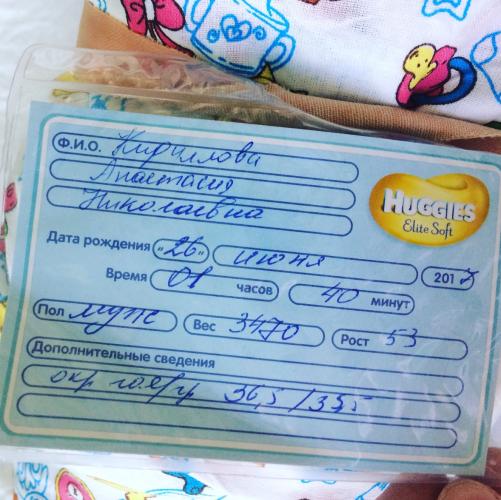 Ф.И.О. Кириллова
Анастасия
Николаевна
HUGGIES
Elite Soft
Дата рождения «26» июня 2017
Время 01 часов 40 минут
Пол муж Вес 3470 Рост 53
Дополнительные сведения
окр 36,5 / 35,5